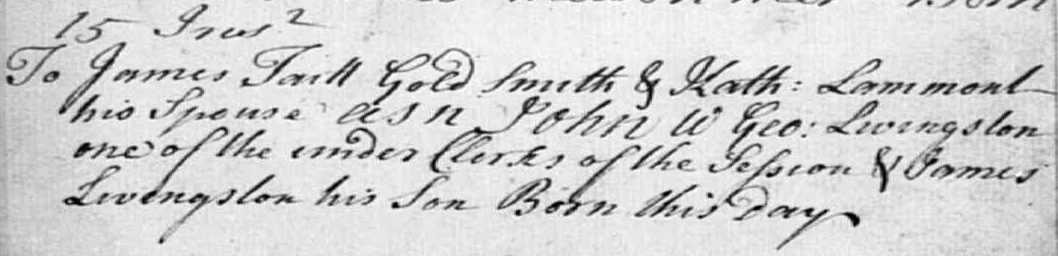 15 Inst
To James Taitt Gold Smith & Kath: Lammont
his Spouse a S n John W Geo: Livingston
one of the under Clerks of the Session & James
Livingston his Son Born this day